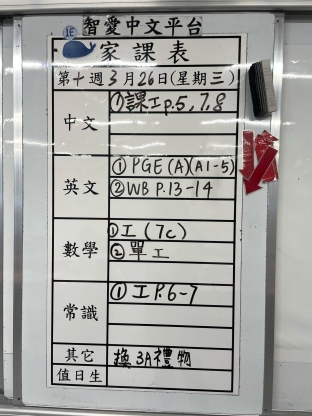 智愛中文平台
1E
家課表
第十週3月26日(星期三)
中文
①課工p.5,7,8
英文
①PGE(A)(A1-5)
②WB P.13-14
數學
①工(7c)
②單工
常識
①工P.6-7
其它
換3A禮物
值日生